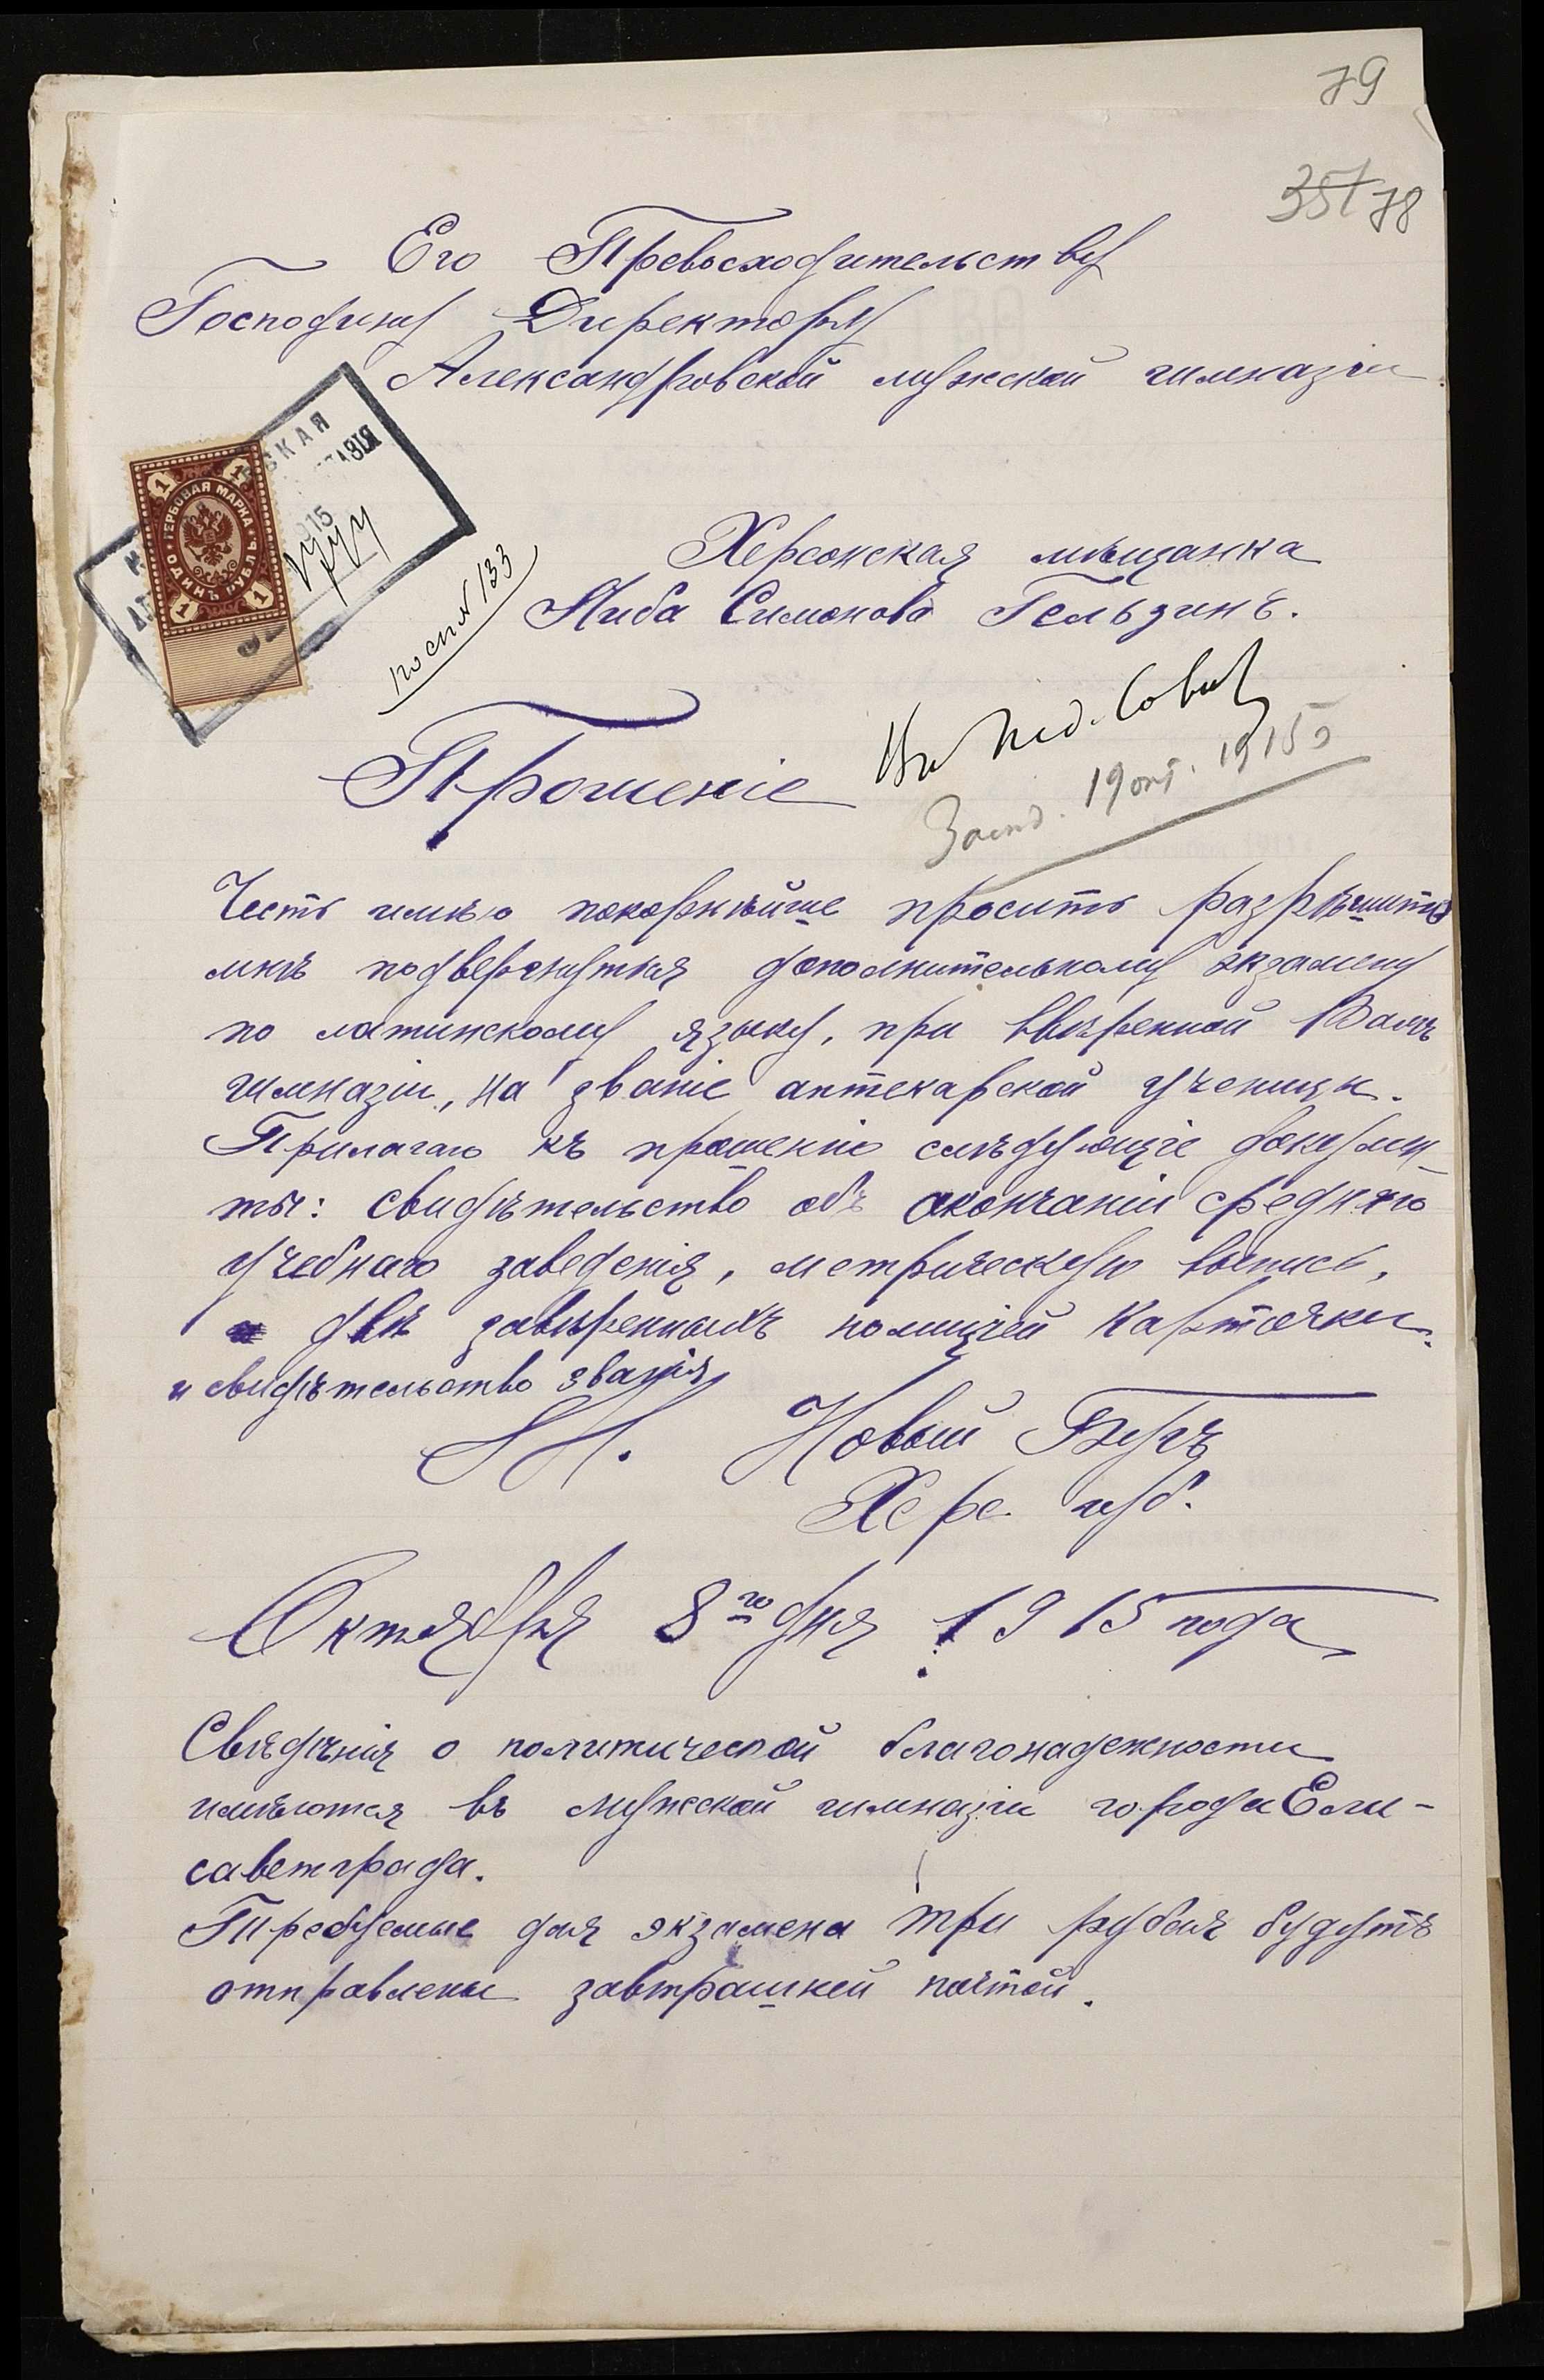 79
357 78
Его Превосходительству
Господину Директору
Александровской мужской гимназіи
СКАЯ
АЗІЯ
ГЕРБОВАЯ МАРКА
ОДИНЪ РУБЛЬ
1
1
1
1
915
1744
по сп. № 133
Херсонская мѣщанка
Либа Симонова Гельзинъ.
Въ Пед. Совѣт
Засѣд. 19 окт. 1915 г
Прошеніе
Честь имѣю покорнѣйше просить разрѣшить
мнѣ подвергнуться дополнительному экзамену
по латинскому языку, при ввѣренной Вамъ
гимназіи, на званіе аптекарской ученицы.
Прилагаю къ прошенію слѣдующіе докумен-
ты: свидѣтельство объ окончаніи средняго
учебнаго заведенія, метрическую выпись,
двѣ завѣренныхъ полиціей карточки.
и свидѣтельство званія
М. Новый Бугъ
Херс. губ.
Октября 8го дня 1915 года
Свѣдѣнія о политической благонадежности
имѣются въ мужской гимназіи города Ели-
саветграда.
Требуемые для экзамена три рубля будутъ
отправлены завтрашней почтой.